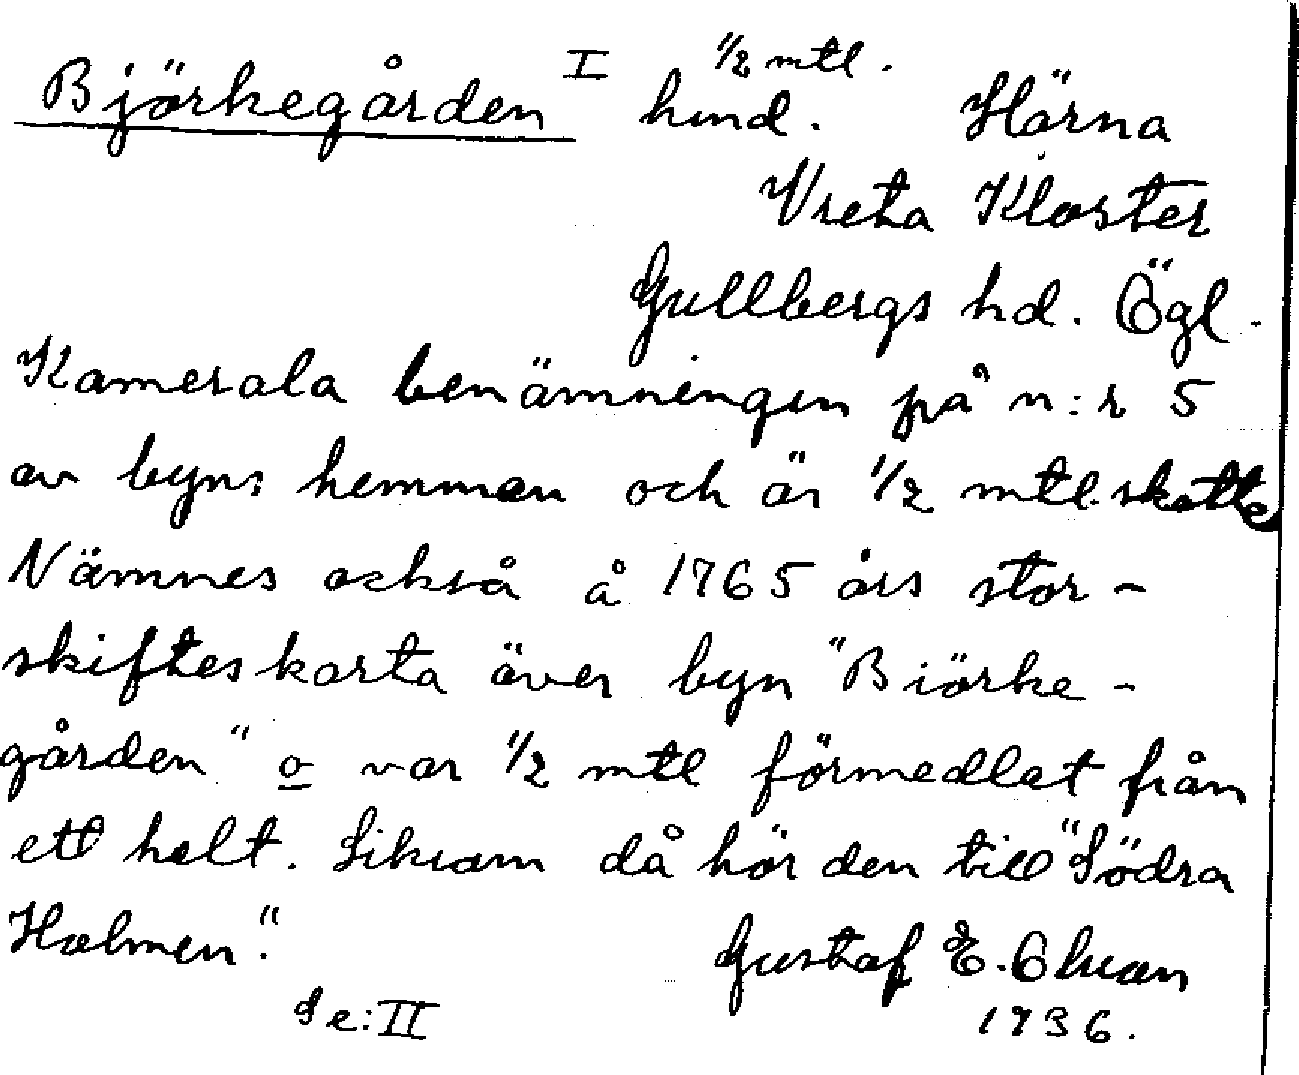 Björkegården I 1/2 mtl.
hmd. Härna
Vreta Kloster
Gullbergs hd. Ögl.
Kamerala benämningen på n:r 5
av byns hemman och är 1/2 mtl skatte
Nämnes också å 1765 års stor-
skifteskarta över byn "Biörke-
gården" o var 1/2 mtl förmedlat från
ett helt. Liksom då hör den till "Södra
Holmen".
Gustaf E. Olsson
Se: II 1936.